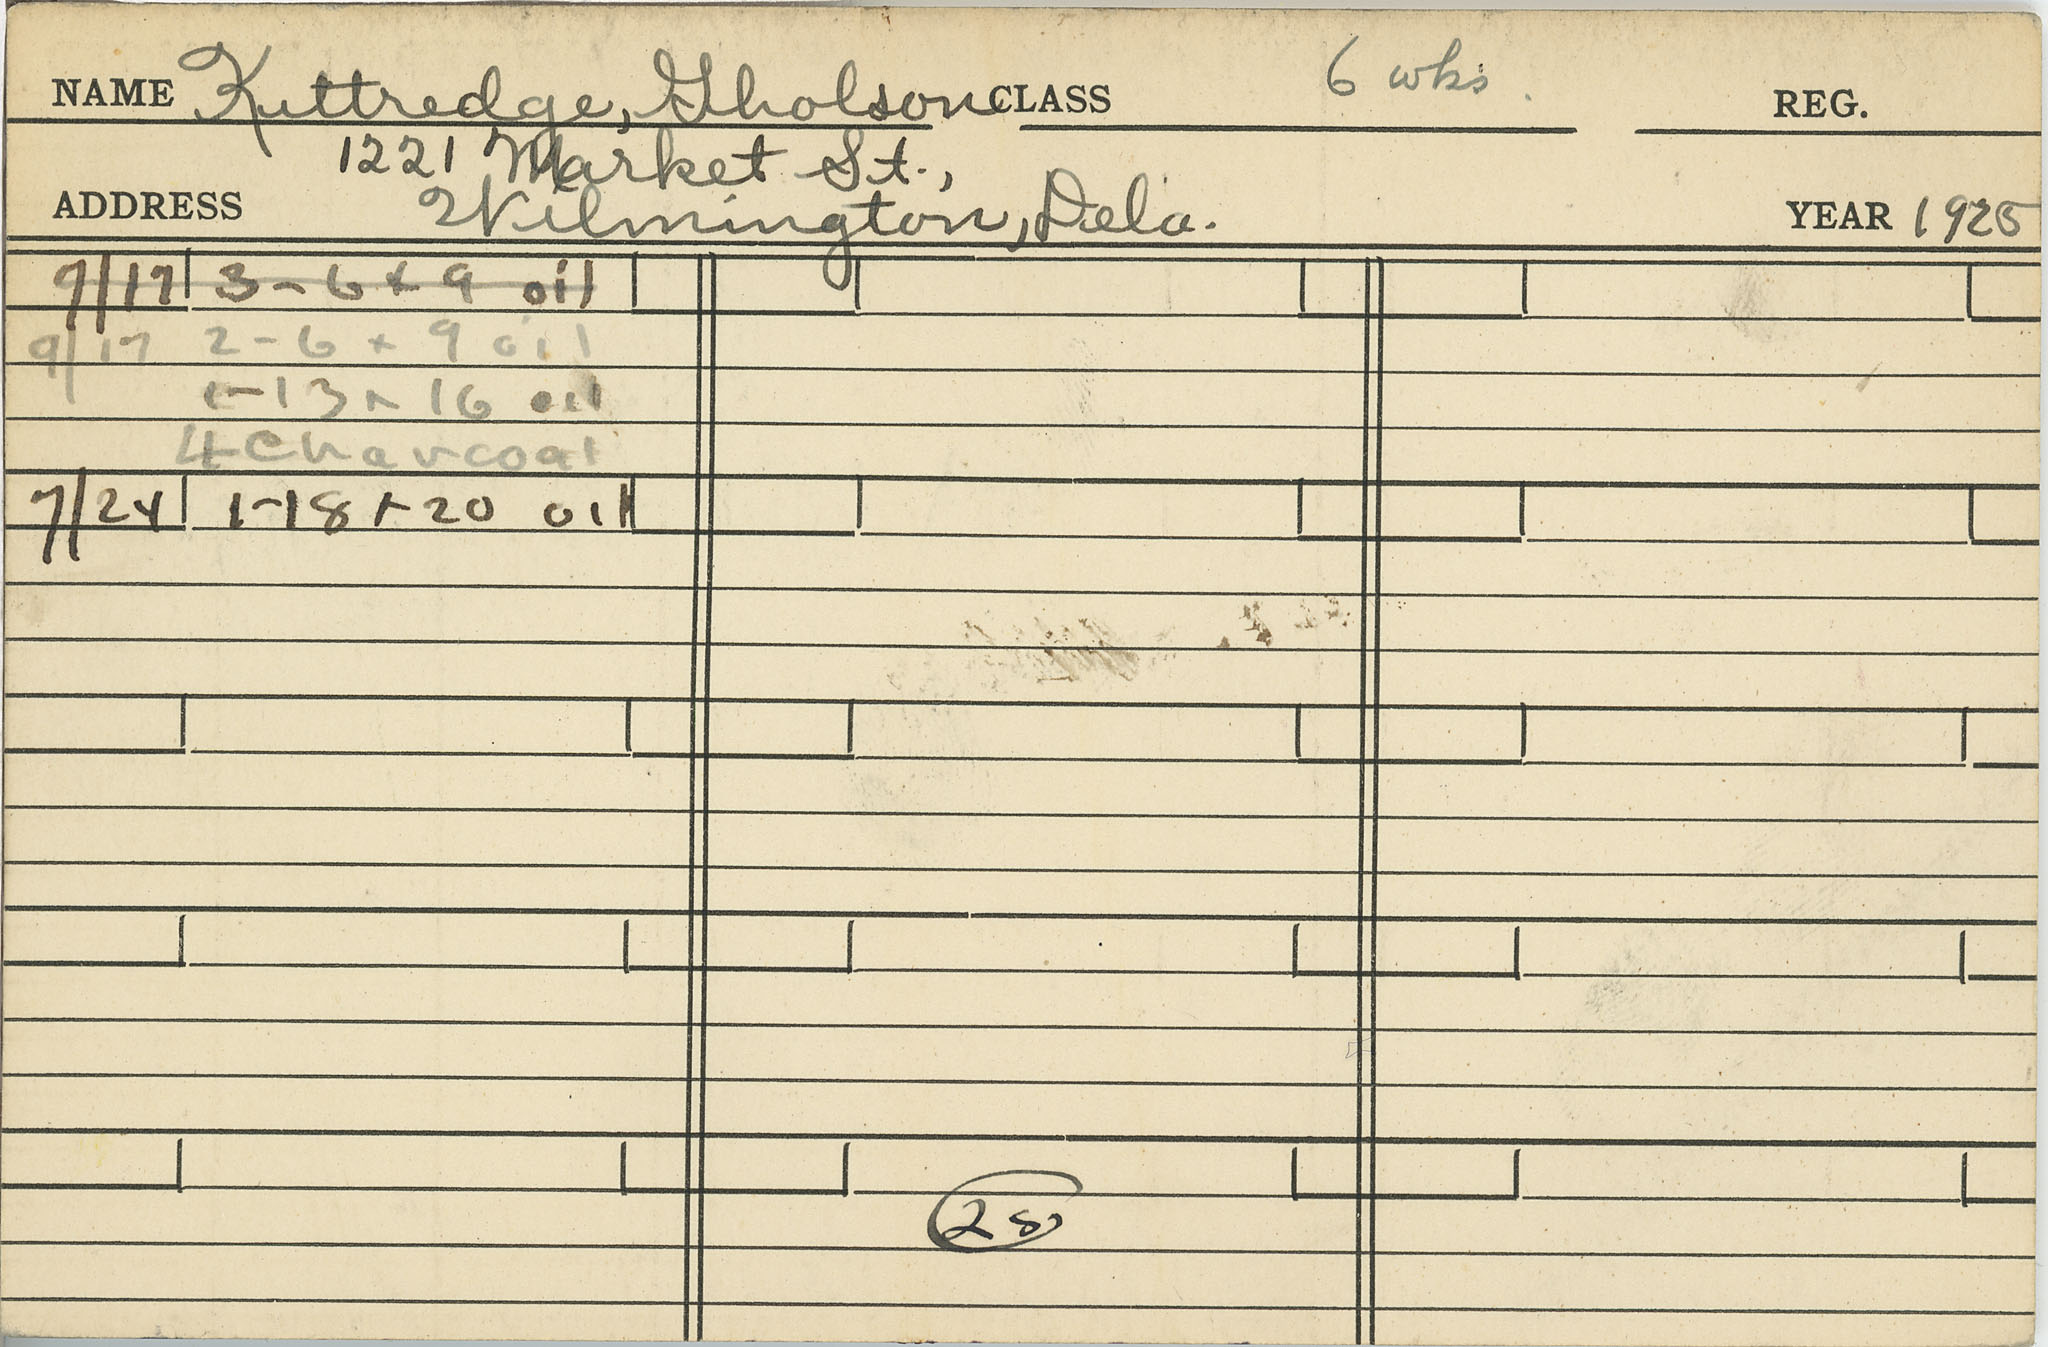 NAME Kittredge, Gholson CLASS 6 wks. REG.
1221 Market St.,
ADDRESS Wilmington, Dela. YEAR 1925
7/17 3-6x9 oil
9/17 2-6x9 oil
1-13x16 oil
4 charcoal
7/24 1-18x20 oil
28